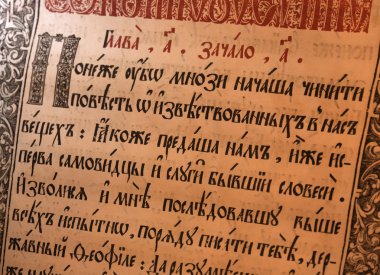 Глава̀, а҃. Зачало, а҃.
Поне́же ᲂу҆́бѡ мно́зи нача́ша чини́ти
по́вѣсть ѡ҆ и҆звѣ́ствованныхъ в̾ на́съ
ве́щехъ: Ꙗ҆́коже преда́ша на́мъ, и҆̀же и҆с-
пе́рва самови́дцы и҆ слꙋги̑ бы́вшїи словесѝ.
И҆зво́лисѧ и҆ мнѣ̀ послѣ́довавшꙋ вы́ше
всѣ́хъ и҆спы́тнѡ, порѧ́дꙋ писа́ти тебѣ̀, дер-
жа́вный Ѳео́фїле: Да